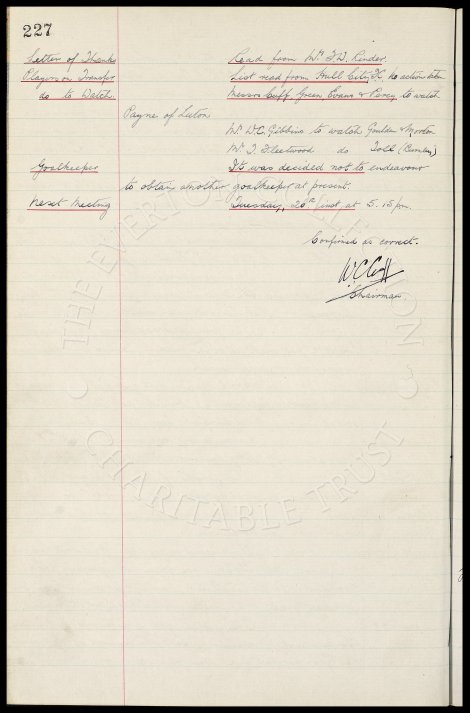 227
Letter of Thanks Read from Mr F.D.
Players on Transfer List read from Hull City FC No action taken
do to Watch. Messrs Cuff, Green Evans & Percy to watch
Payne of
Mr D.C. Gibbins to watch Goulden & Morton
Mr T. Fleetwood do
Goalkeeper It was decided not to endeavour
to obtain another goalkeeper at present.
Next Meeting Tuesday, 20th inst at 5.15 pm.
Confirmed as correct.
W.C. Cuff
Chairman
THE EVERTON COLLECTION
CHARITABLE TRUST